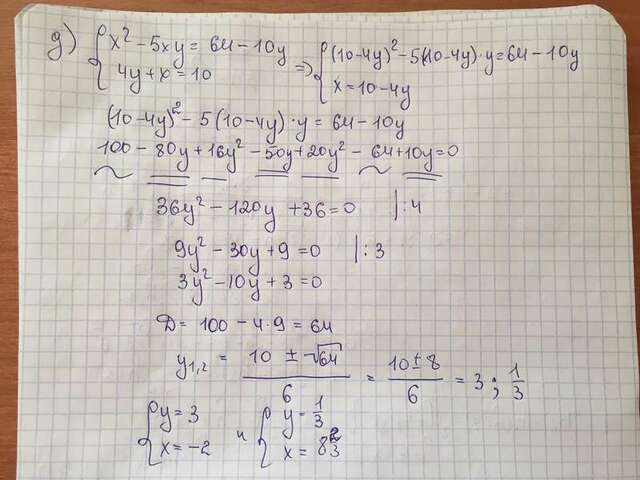 g) { x² - 5xy = 64 - 10y => { (10-4y)² - 5(10-4y)·y = 64 - 10y
4y + x = 10 x = 10 - 4y
(10-4y)² - 5(10-4y)·y = 64 - 10y
100 - 80y + 16y² - 50y + 20y² - 64 + 10y = 0
36y² - 120y + 36 = 0 |:4
9y² - 30y + 9 = 0 |:3
3y² - 10y + 3 = 0
D = 100 - 4·9 = 64
y₁,₂ = (10 ± √64)/6 = (10 ± 8)/6 = 3; 1/3
{ y = 3 и { y = 1/3
x = -2 x = 8 2/3